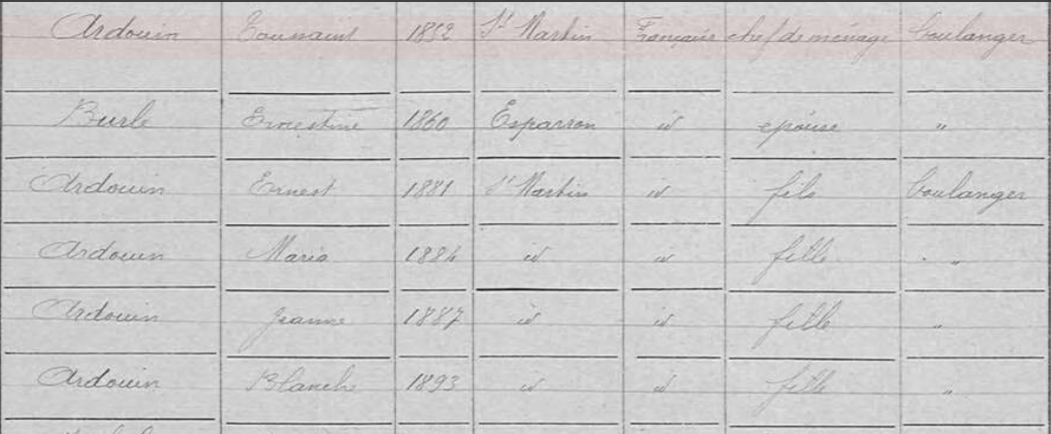 Ardouin Toussaint 1852 St Martin Française chef de ménage boulanger
Burle Ernestine 1860 Esparron id épouse "
Ardouin Ernest 1881 St Martin id fils boulanger
Ardouin Maria 1884 id id fille "
Ardouin Jeanne 1887 id id fille "
Ardouin Blanche 1893 id id fille "